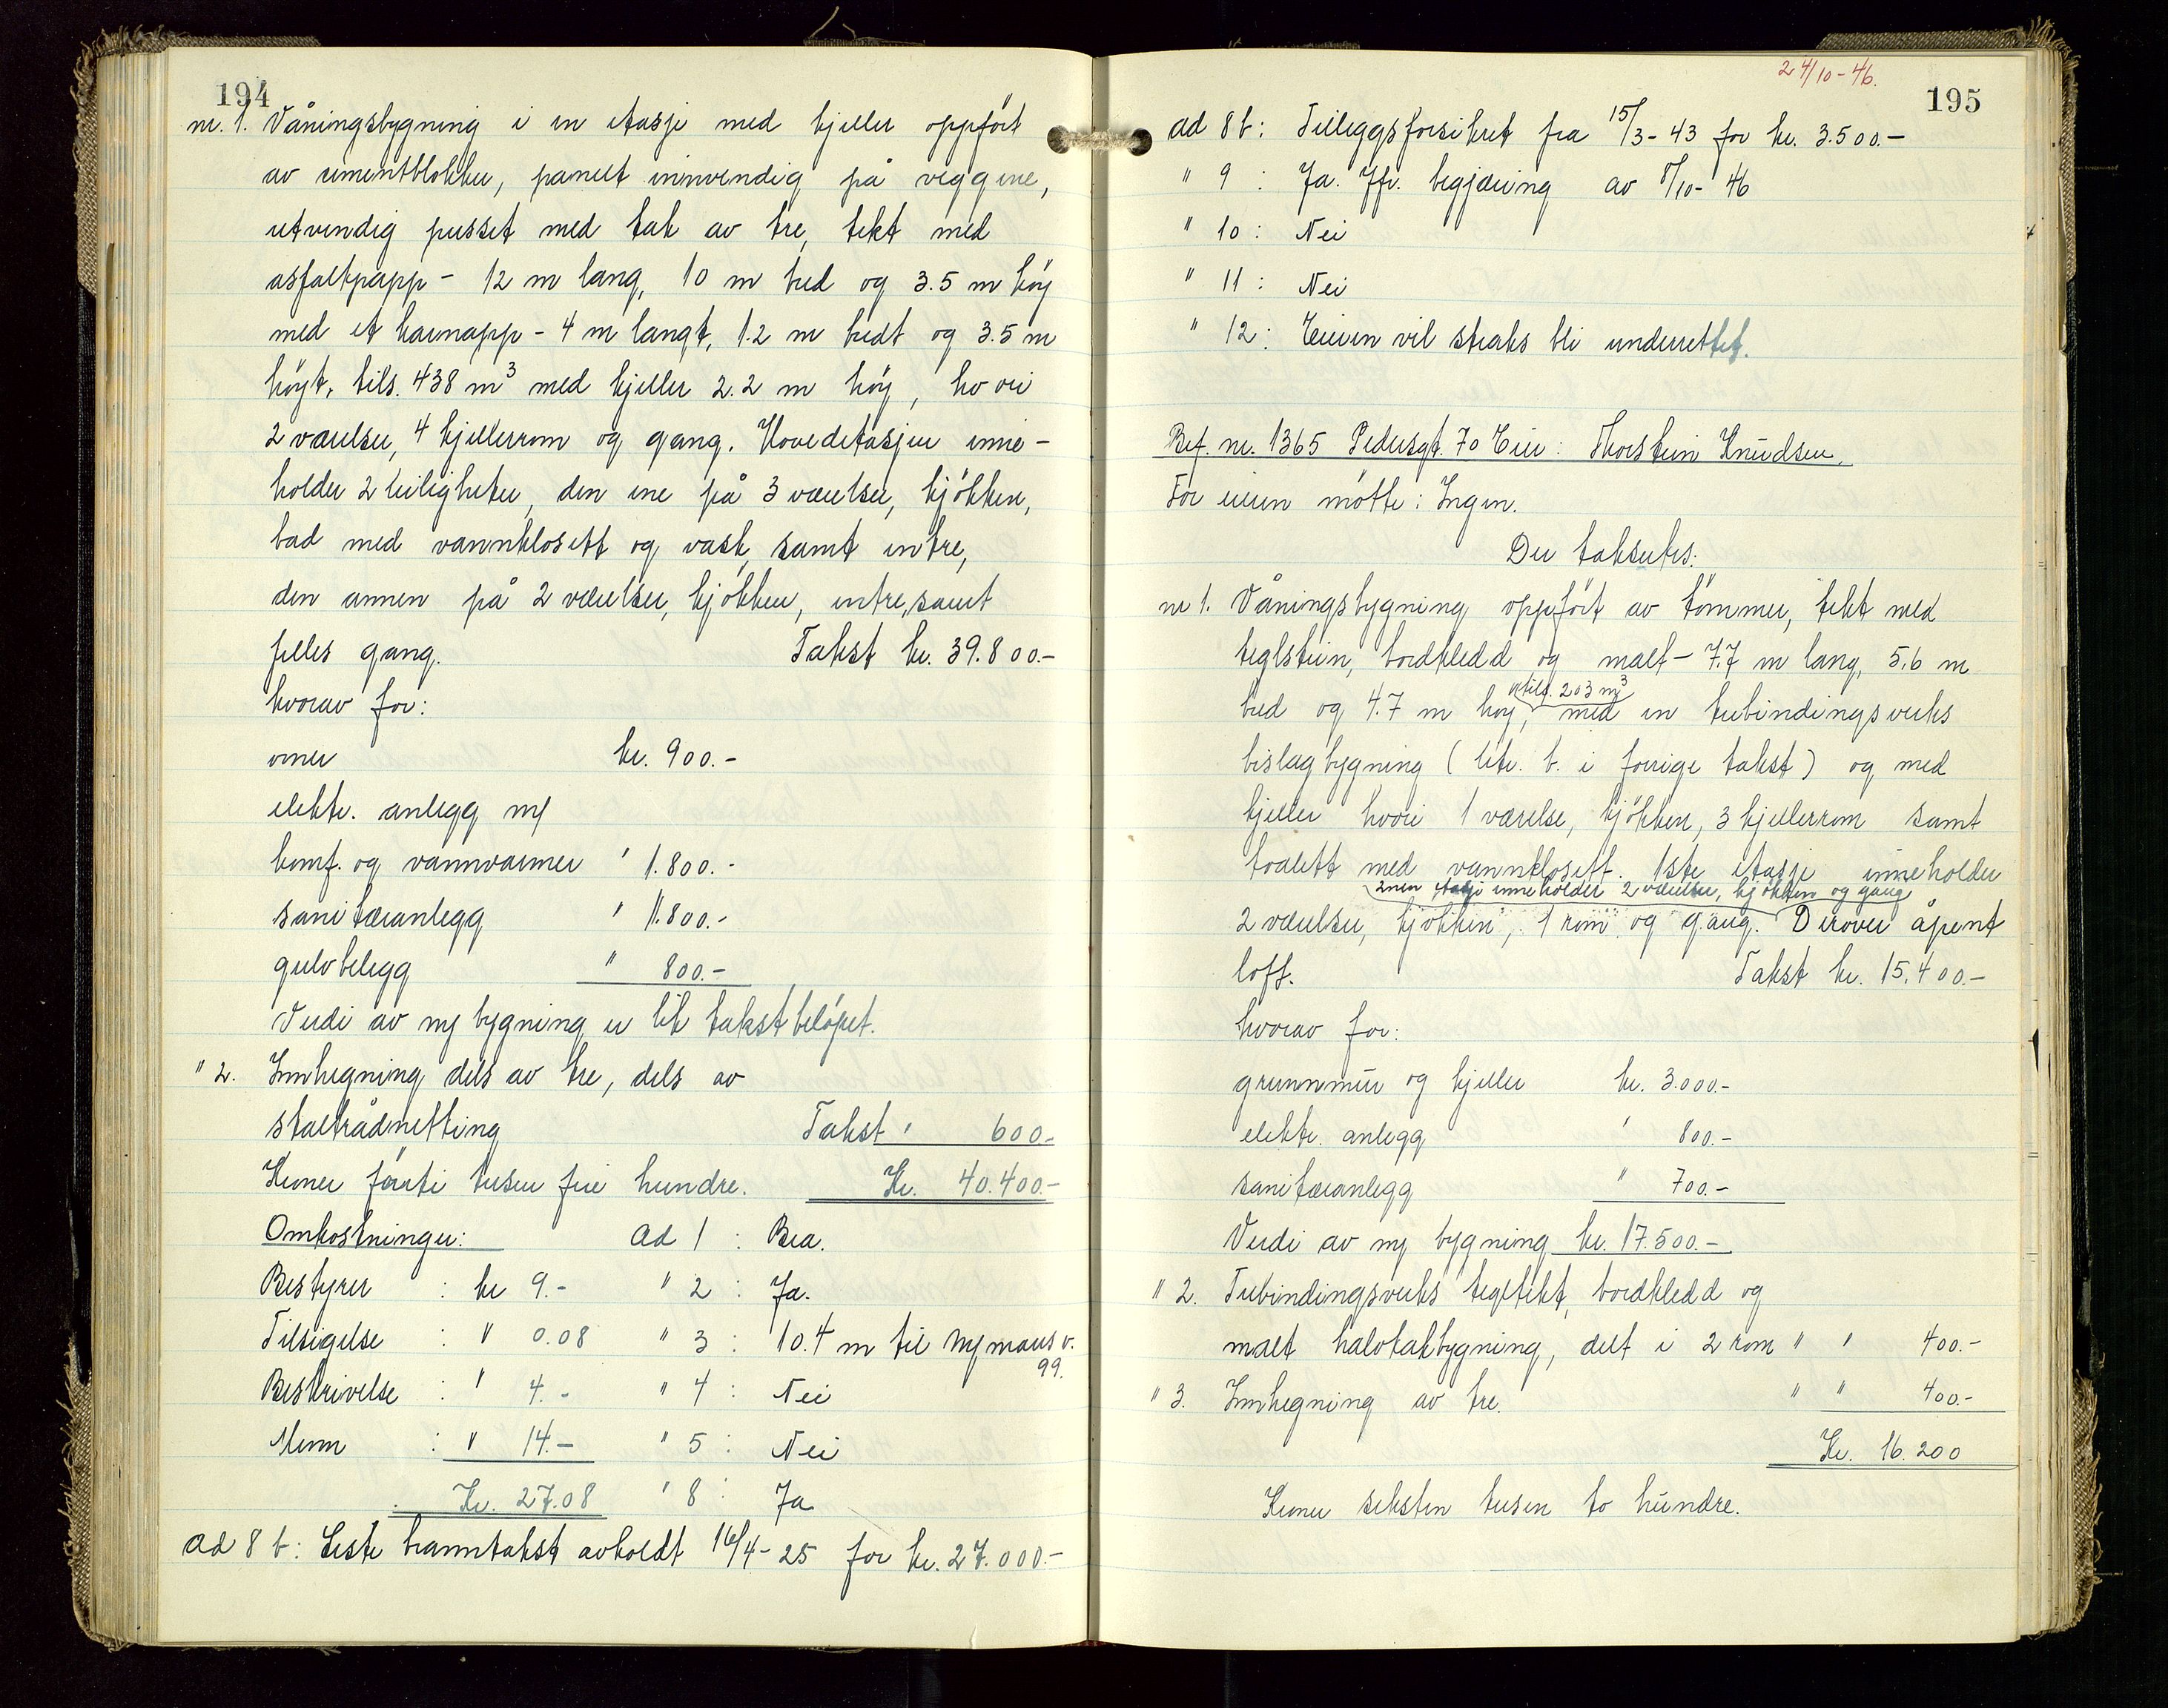 194
nr. 1. Våningsbygning i en etasje med kjeller oppført
av sementblokker, panelt innvendig på veggene,
utvendig pusset med tak av tre, tekt med
asfaltpapp - 12 m lang, 10 m bred og 3.5 m høy
med et karnapp - 4 m langt, 1.2 m bredt og 3.5 m
høyt, tils. 438 m³ med kjeller 2.2 m høy, hvori
2 værelser, 4 kjellerrom og gang. Hovedetasjen inne-
holder 2 leiligheter, den ene på 3 værelser, kjøkken,
bad med vannklosett og vask, samt entre,
den annen på 2 værelser, kjøkken, entre, samt
felles gang. Takst kr. 39.800.-
hvorav for:
ovner kr. 900.-
elektr. anlegg m/
komf. og vannvarmer " 1.800.-
sanitæranlegg " 11.800.-
gulvbelegg " 800.-
Verdi av ny bygning er lik takstbeløpet.
" 2. Innhegning dels av tre, dels av
ståltrådnetting Takst " 600.-
Kroner førti tusen fire hundre. Kr. 40.400.-
Omkostninger: ad 1 : Bra.
Bestyrer : kr 9.- " 2 : Ja.
Tilsigelse : " 0.08 " 3 : 10.4 m til Nymansv.
99.
Beskrivelse : " 4.- " 4 : Nei
Menn : " 14.- " 5 : Nei
Kr. 27.08 " 8 : Ja
ad 8 b: Siste branntakst avholdt 16/4-25 for kr. 27.000.-
24/10-46.
195
ad 8 b: Tilleggsforsikret fra 15/3-43 for kr. 3.500.-
" 9 : Ja. Jfr. begjæring av 8/10-46
" 10 : Nei
" 11 : Nei
" 12 : Eieren vil straks bli underrettet.
Bef. nr. 1365 Pedersgt. 70 Eier: Thorstein Knudsen.
For eieren møtte: Ingen.
Der takseres:
nr 1. Våningsbygning oppført av tømmer, tekt med
teglstein, bordkledd og malt - 7.7 m lang, 5,6 m
tils. 203 m³
bred og 4.7 m høy, med en trebindingsverks
bislagbygning (litr. b. i forrige takst) og med
kjeller hvori 1 værelse, kjøkken, 3 kjellerrom samt
toalett med vannklosett. 1ste etasje inneholder
2nen etasje inneholder 2 værelser, kjøkken og gang
2 værelser, kjøkken, 1 rom og gang. Derover åpent
loft. Takst kr. 15.400.-
hvorav for:
grunnmur og kjeller kr. 3.000.-
elektr. anlegg " 800.-
sanitæranlegg " 700.-
Verdi av ny bygning kr. 17.500.-
" 2. Trebindingsverks tegltekt, bordkledd og
malt halvtakbygning, delt i 2 rom " " 400.-
" 3. Innhegning av tre. " " 400.-
Kr. 16.200
Kroner seksten tusen to hundre.